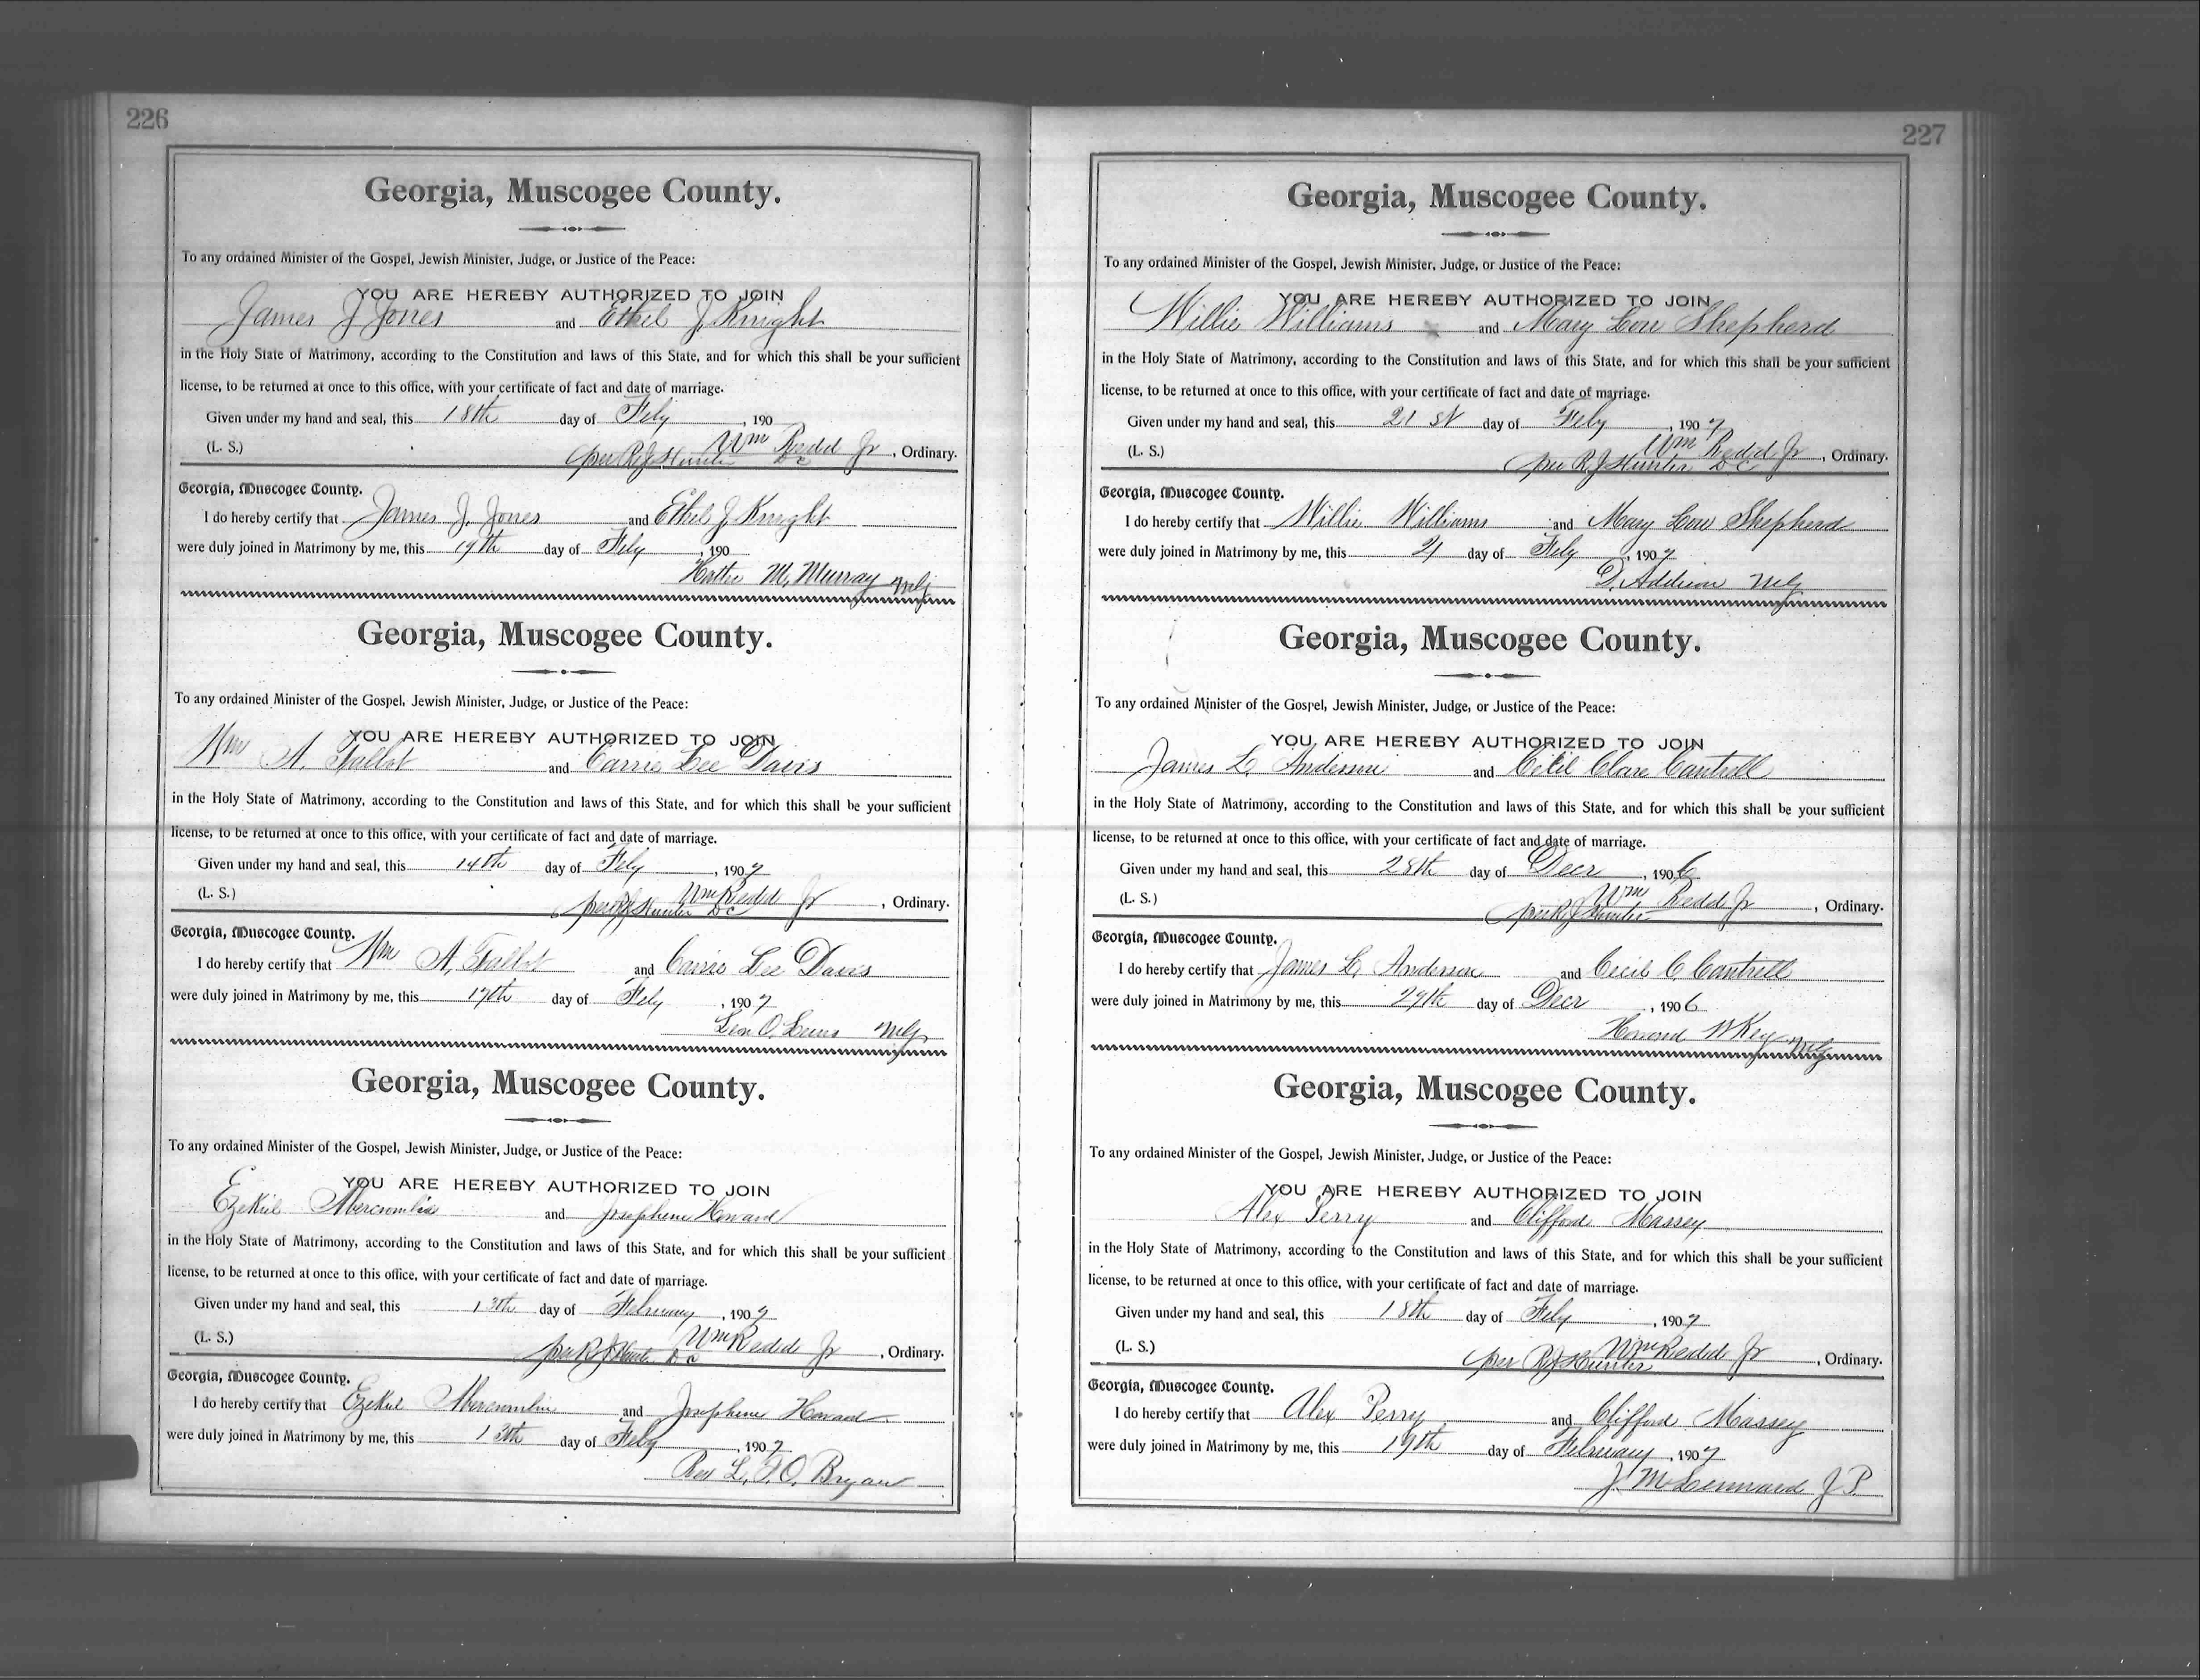 226
Georgia, Muscogee County.
To any ordained Minister of the Gospel, Jewish Minister, Judge, or Justice of the Peace:
YOU ARE HEREBY AUTHORIZED TO JOIN
James J Jones and Ethel J Knight
in the Holy State of Matrimony, according to the Constitution and laws of this State, and for which this shall be your sufficient
license, to be returned at once to this office, with your certificate of fact and date of marriage.
Given under my hand and seal, this 18th day of Feby , 190
Wm Redd Jr , Ordinary.
(L. S.) per R J Hunter D C
Georgia, Muscogee County.
I do hereby certify that James J. Jones and Ethel J Knight
were duly joined in Matrimony by me, this 19th day of Feby , 190
M. Murray MG
Georgia, Muscogee County.
To any ordained Minister of the Gospel, Jewish Minister, Judge, or Justice of the Peace:
YOU ARE HEREBY AUTHORIZED TO JOIN
Wm A. Talbot and Carrie Lee Davis
in the Holy State of Matrimony, according to the Constitution and laws of this State, and for which this shall be your sufficient
license, to be returned at once to this office, with your certificate of fact and date of marriage.
Given under my hand and seal, this 14th day of Feby , 1907
Wm Redd Jr , Ordinary.
(L. S.) per R J Hunter D C
Georgia, Muscogee County.
I do hereby certify that Wm A. Talbot and Carrie Lee Davis
were duly joined in Matrimony by me, this 17th day of Feby , 1907
O. Lewis MG
Georgia, Muscogee County.
To any ordained Minister of the Gospel, Jewish Minister, Judge, or Justice of the Peace:
YOU ARE HEREBY AUTHORIZED TO JOIN
Ezekiel Abercrombie and Josephene Howard
in the Holy State of Matrimony, according to the Constitution and laws of this State, and for which this shall be your sufficient
license, to be returned at once to this office, with your certificate of fact and date of marriage.
Given under my hand and seal, this 13th day of February , 1907
Wm Redd Jr , Ordinary.
(L. S.) per R J Hunter D C
Georgia, Muscogee County.
I do hereby certify that Ezekiel Abercrombie and Josephene Howard
were duly joined in Matrimony by me, this 13th day of Feby , 1907
Rev L. F. O. Bryan
227
Georgia, Muscogee County.
To any ordained Minister of the Gospel, Jewish Minister, Judge, or Justice of the Peace:
YOU ARE HEREBY AUTHORIZED TO JOIN
Willie Williams and Mary Lou Shepherd
in the Holy State of Matrimony, according to the Constitution and laws of this State, and for which this shall be your sufficient
license, to be returned at once to this office, with your certificate of fact and date of marriage.
Given under my hand and seal, this 21 st day of Feby , 1907
Wm Redd Jr , Ordinary.
(L. S.) per R J Hunter D C
Georgia, Muscogee County.
I do hereby certify that Willie Williams and Mary Lou Shepherd
were duly joined in Matrimony by me, this 21 day of Feby , 1907
D. Addison MG
Georgia, Muscogee County.
To any ordained Minister of the Gospel, Jewish Minister, Judge, or Justice of the Peace:
YOU ARE HEREBY AUTHORIZED TO JOIN
James L. Anderson and Cecil Clare Cantrell
in the Holy State of Matrimony, according to the Constitution and laws of this State, and for which this shall be your sufficient
license, to be returned at once to this office, with your certificate of fact and date of marriage.
Given under my hand and seal, this 28th day of Decr , 1906
Wm Redd Jr , Ordinary.
(L. S.) per R J Hunter
Georgia, Muscogee County.
I do hereby certify that James L. Anderson and Cecil C. Cantrell
were duly joined in Matrimony by me, this 29th day of Decr , 1906
Howard W Key MG
Georgia, Muscogee County.
To any ordained Minister of the Gospel, Jewish Minister, Judge, or Justice of the Peace:
YOU ARE HEREBY AUTHORIZED TO JOIN
Alex Perry and Clifford Massey
in the Holy State of Matrimony, according to the Constitution and laws of this State, and for which this shall be your sufficient
license, to be returned at once to this office, with your certificate of fact and date of marriage.
Given under my hand and seal, this 18th day of Feby , 1907
Wm Redd Jr , Ordinary.
(L. S.) per R J Hunter
Georgia, Muscogee County.
I do hereby certify that Alex Perry and Clifford Massey
were duly joined in Matrimony by me, this 19th day of February , 1907
J. M Lennard J P.